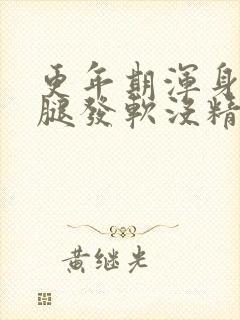 更年期渾身
腿發軟沒精
黄继光